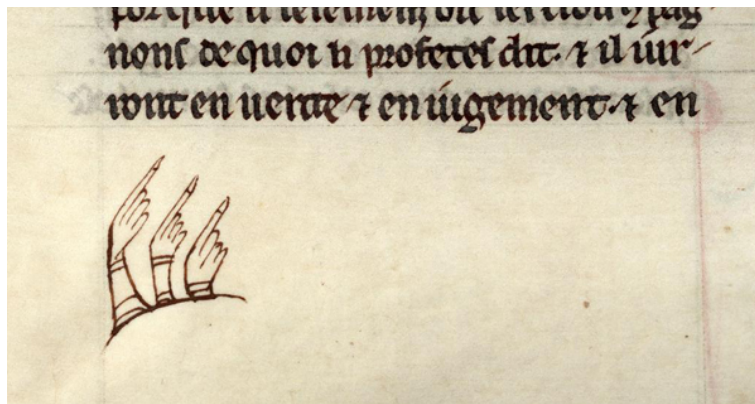 nons de quoi li profetes dit. ⁊ il iur
ront en uerite ⁊ en iugement. ⁊ en